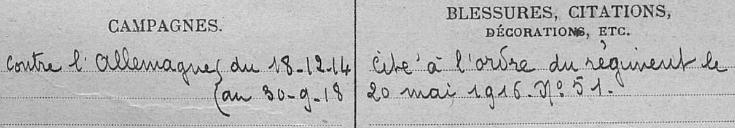 CAMPAGNES.
contre l'Allemagne ( du 18-12-14
( au 30-9-18
BLESSURES, CITATIONS,
DÉCORATIONS, ETC.
Cité à l'ordre du régiment le
20 mai 1916. N° 51.